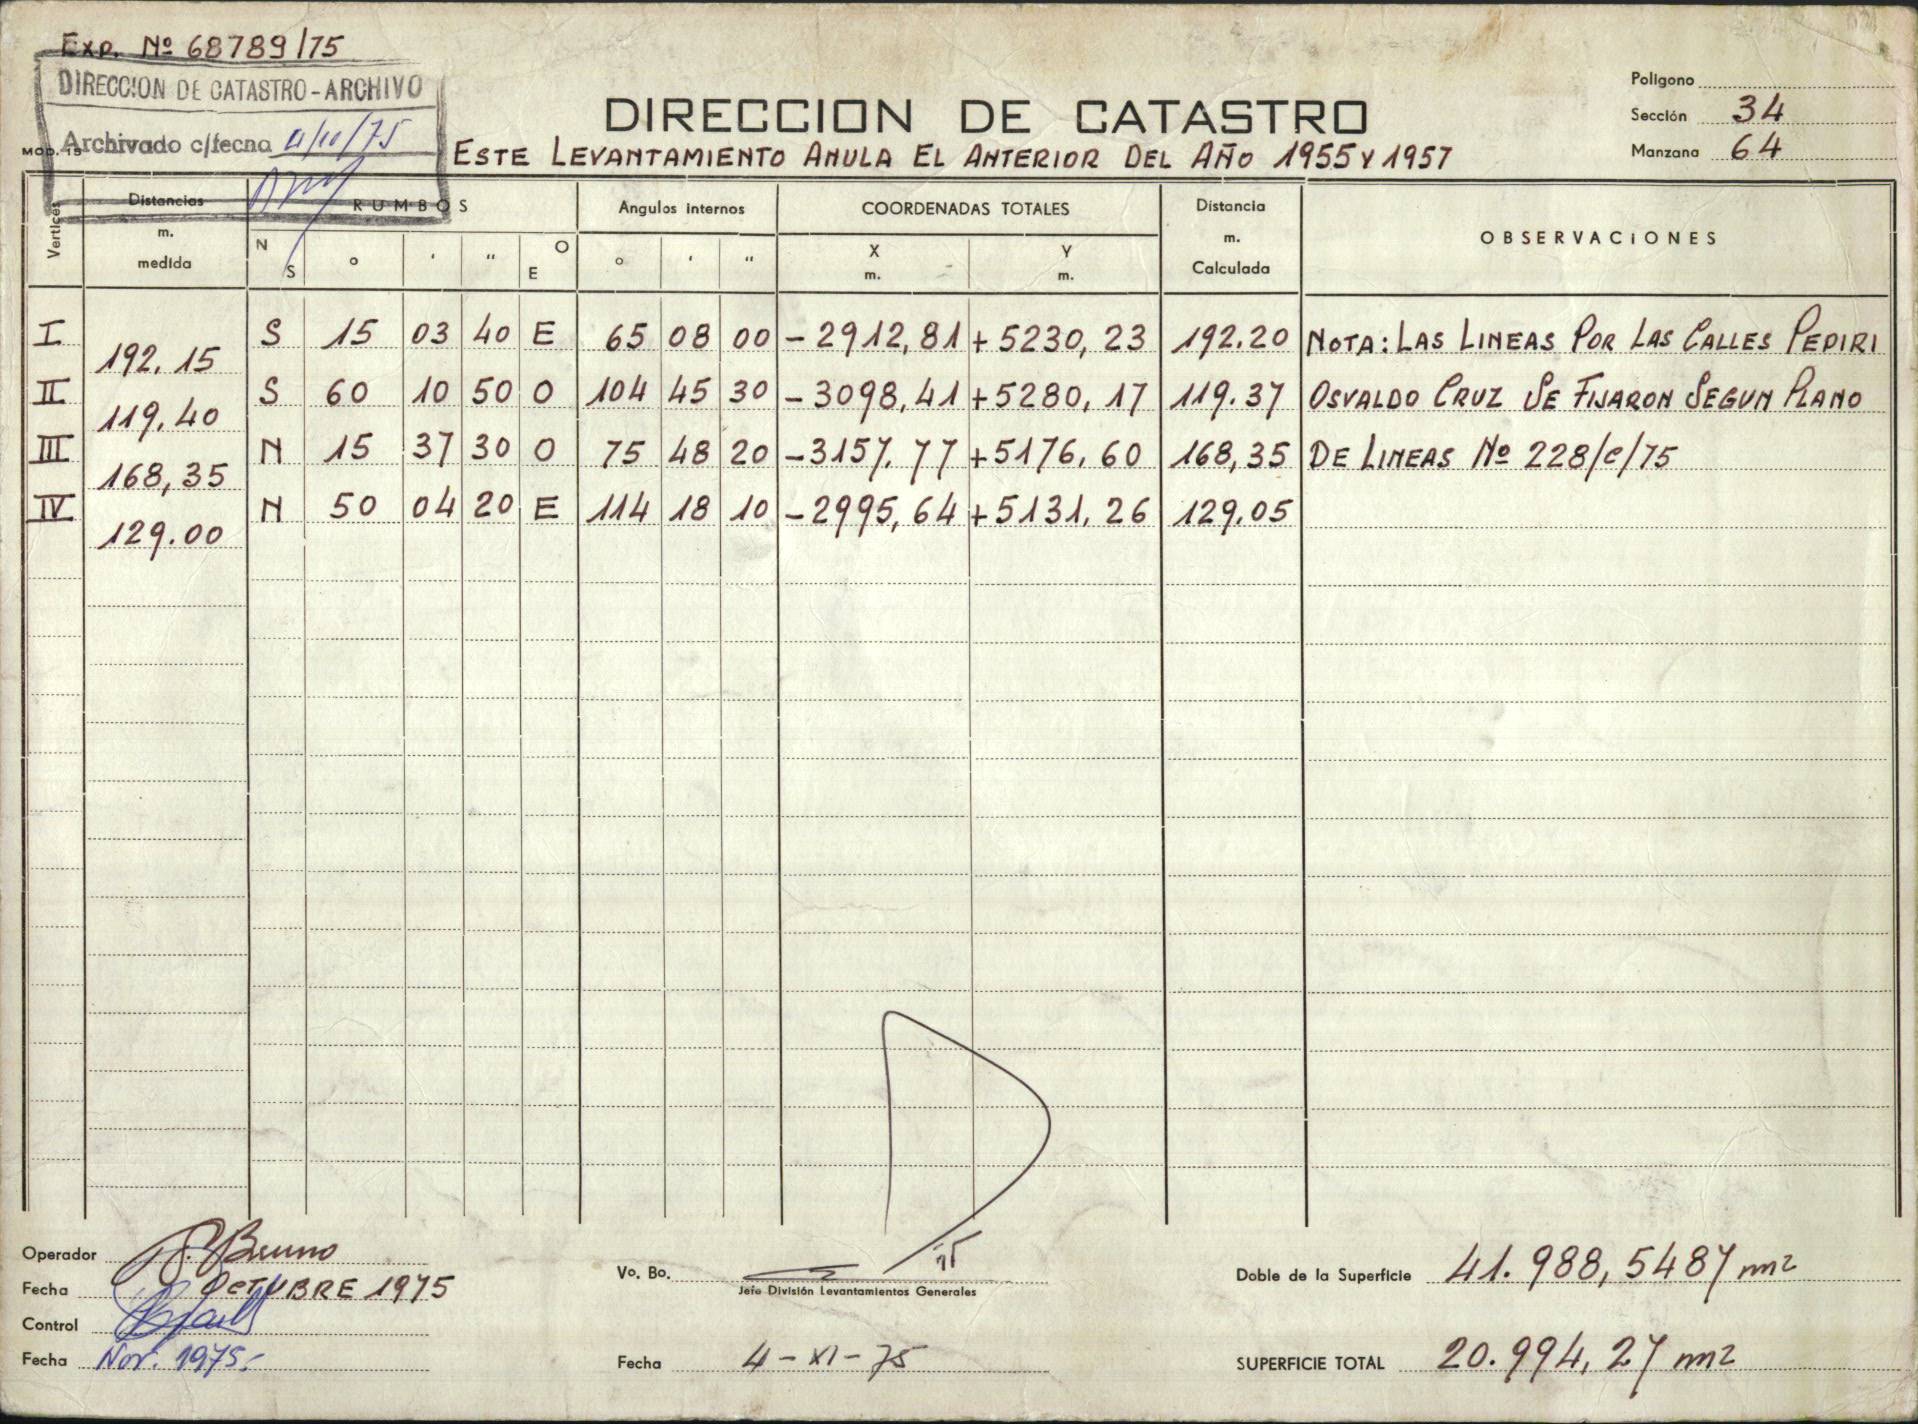 Exp. Nº 68789/75
DIRECCION DE CATASTRO - ARCHIVO
Archivado c/fecha 4/11/75
MOD. 15
DIRECCION DE CATASTRO
ESTE LEVANTAMIENTO ANULA EL ANTERIOR DEL AÑO 1955 Y 1957
Polígono
Sección 34
Manzana 64
Vertices Distancias m. medida RUMBOS Angulos internos COORDENADAS TOTALES Distancia m. Calculada OBSERVACIONES
N S ° ' " O E ° ' " X m. Y m.
I 192.15 S 15 03 40 E 65 08 00 -2912,81 +5230,23 192.20 NOTA: LAS LINEAS POR LAS CALLES PEPIRI
II 119.40 S 60 10 50 O 104 45 30 -3098,41 +5280,17 119.37 OSVALDO CRUZ SE FIJARON SEGUN PLANO
III 168,35 N 15 37 30 O 75 48 20 -3157,77 +5176,60 168,35 DE LINEAS Nº 228/C/75
IV 129.00 N 50 04 20 E 114 18 10 -2995,64 +5131,26 129.05
Operador Bruno
Fecha OCTUBRE 1975
Control
Fecha Nov. 1975.-
Vo. Bo.
Jefe División Levantamientos Generales
Fecha 4-XI-75
Doble de la Superficie 41.988,5487 m2
SUPERFICIE TOTAL 20.994,27 m2